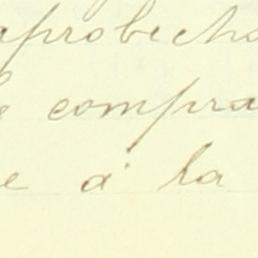 aprobecha
e compra
e á la